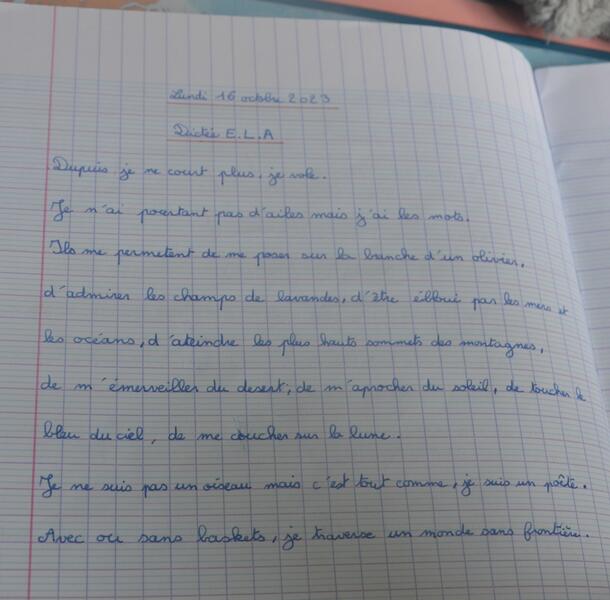 Lundi 16 octobre 2023
Dictée E.L.A
Depuis je ne court plus, je vole.
Je n'ai pourtant pas d'ailes mais j'ai les mots.
Ils me permetent de me poser sur la branche d'un olivier,
d'admirer les champs de lavandes, d'être ébloui par les mers et
les océans, d'ateindre les plus hauts sommets des montagnes,
de m'émerveiller du desert, de m'aprocher du soleil, de toucher le
bleu du ciel, de me coucher sur la lune.
Je ne suis pas un oiseau mais c'est tout comme, je suis un poête.
Avec ou sans baskets, je traverse un monde sans frontière.